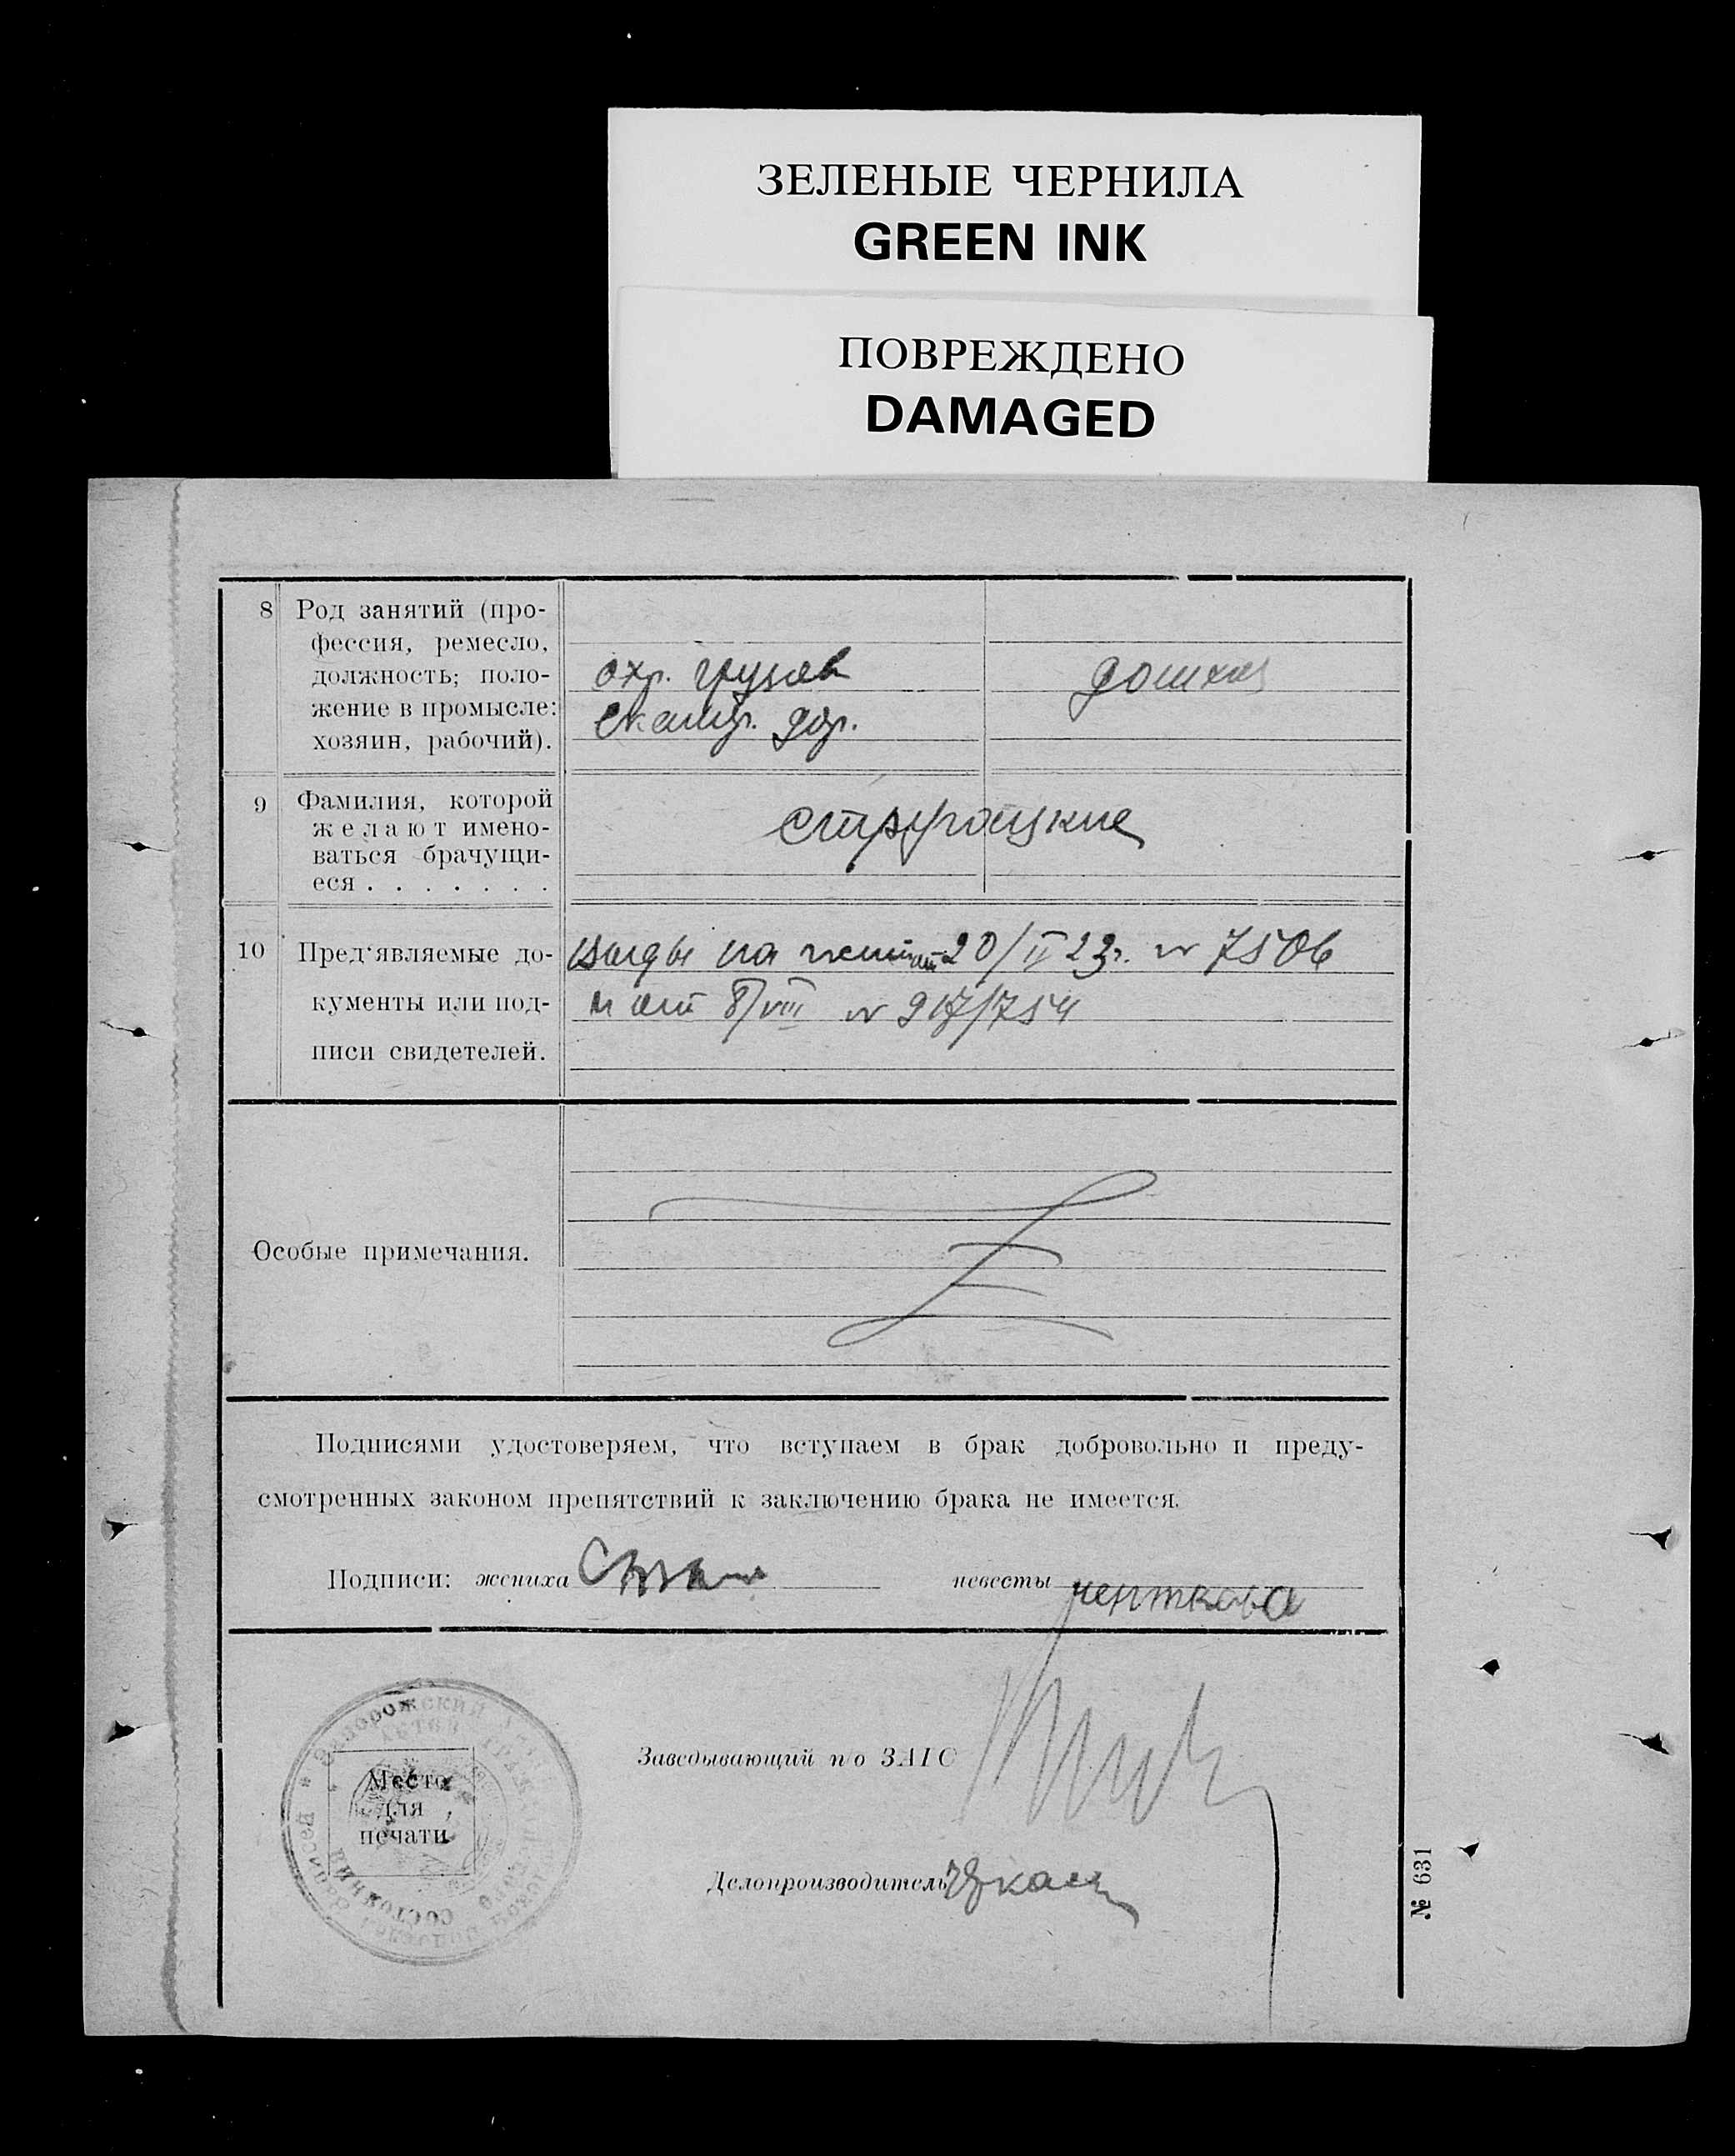 ЗЕЛЕНЫЕ ЧЕРНИЛА
GREEN INK
ПОВРЕЖДЕНО
DAMAGED
8 Род занятий (про-
фессия, ремесло,
должность; поло-
жение в промысле:
хозяин, рабочий).
охр. грузов
Екатер. дор.
домхоз
9 Фамилия, которой
желают имено-
ваться брачущи-
еся . . . . . . .
10 Пред'являемые до-
кументы или под-
писи свидетелей.
виды на жит от 20/II 23г. № 7506
и от 8/VIII № 917/754
Особые примечания.
Подписями удостоверяем, что вступаем в брак добровольно и преду-
смотренных законом препятствий к заключению брака не имеется.
Подписи: жениха невесты
Заведывающий по ЗАГС
Место
для
печати
Делопроизводитель
№ 631